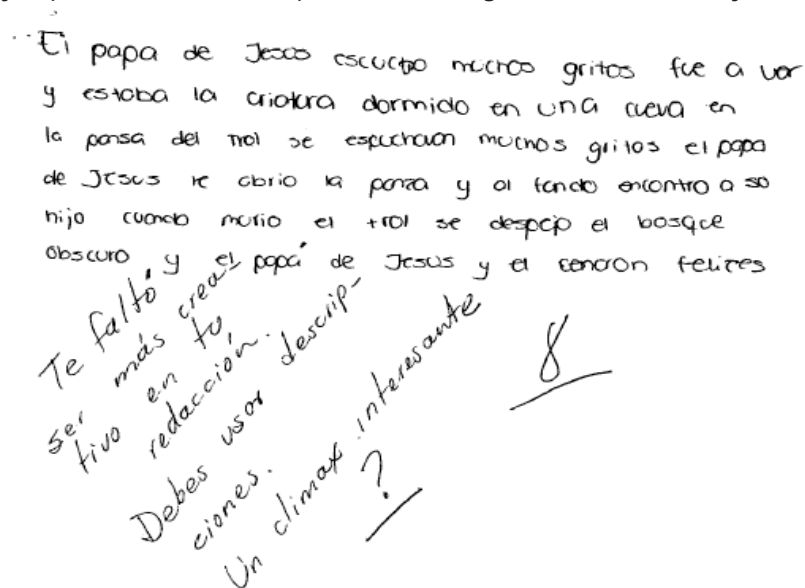 El papa de Jesos escucho muchos gritos fue a var
y estaba la criatura dormido en una cueva en
la pansa del trol se espucharon muchos gritos el papa
de Jesus le abrio la panza y al fondo encontro a so
hijo cuando murio el trol se despejo el bosque
obscuro y el papá de Jesus y el felices
Te faltó
ser más crea-
tivo en tu
redacción.
Debes usar descrip-
ciones.
Un climax interesante
?
8